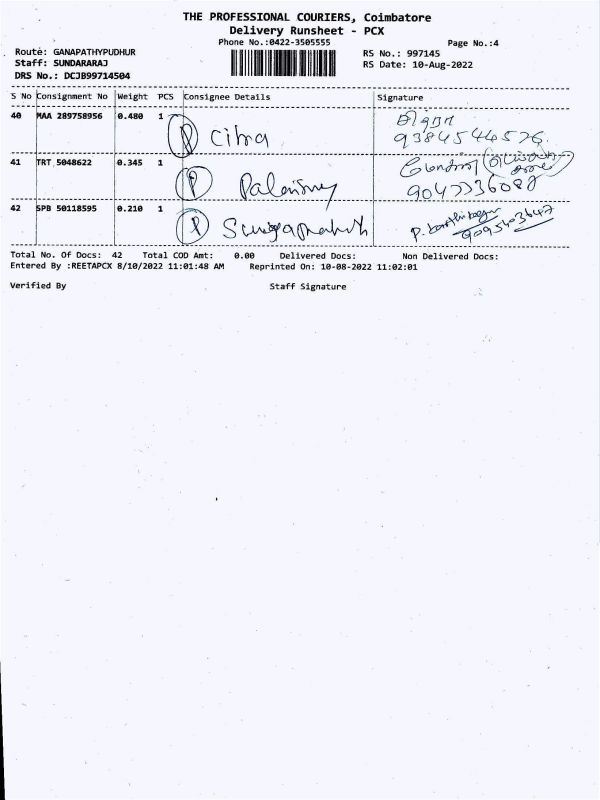 THE PROFESSIONAL COURIERS, Coimbatore
Delivery Runsheet - PCX
Phone No.:0422-3505555
Page No.:4
Route: GANAPATHYPUDHUR
RS No.: 997145
Staff: SUNDARARAJ
RS Date: 10-Aug-2022
DRS No.: DCJB99714504
S No Consignment No Weight PCS Consignee Details Signature
40 MAA 289758956 0.480 1 P Citra சித்ரா
9384544526
41 TRT 5048622 0.345 1 P
9047336088
42 SPB 50118595 0.210 1 P
9095403647
Total No. Of Docs: 42 Total COD Amt: 0.00 Delivered Docs: Non Delivered Docs:
Entered By :REETAPCX 8/10/2022 11:01:48 AM Reprinted On: 10-08-2022 11:02:01
Verified By Staff Signature